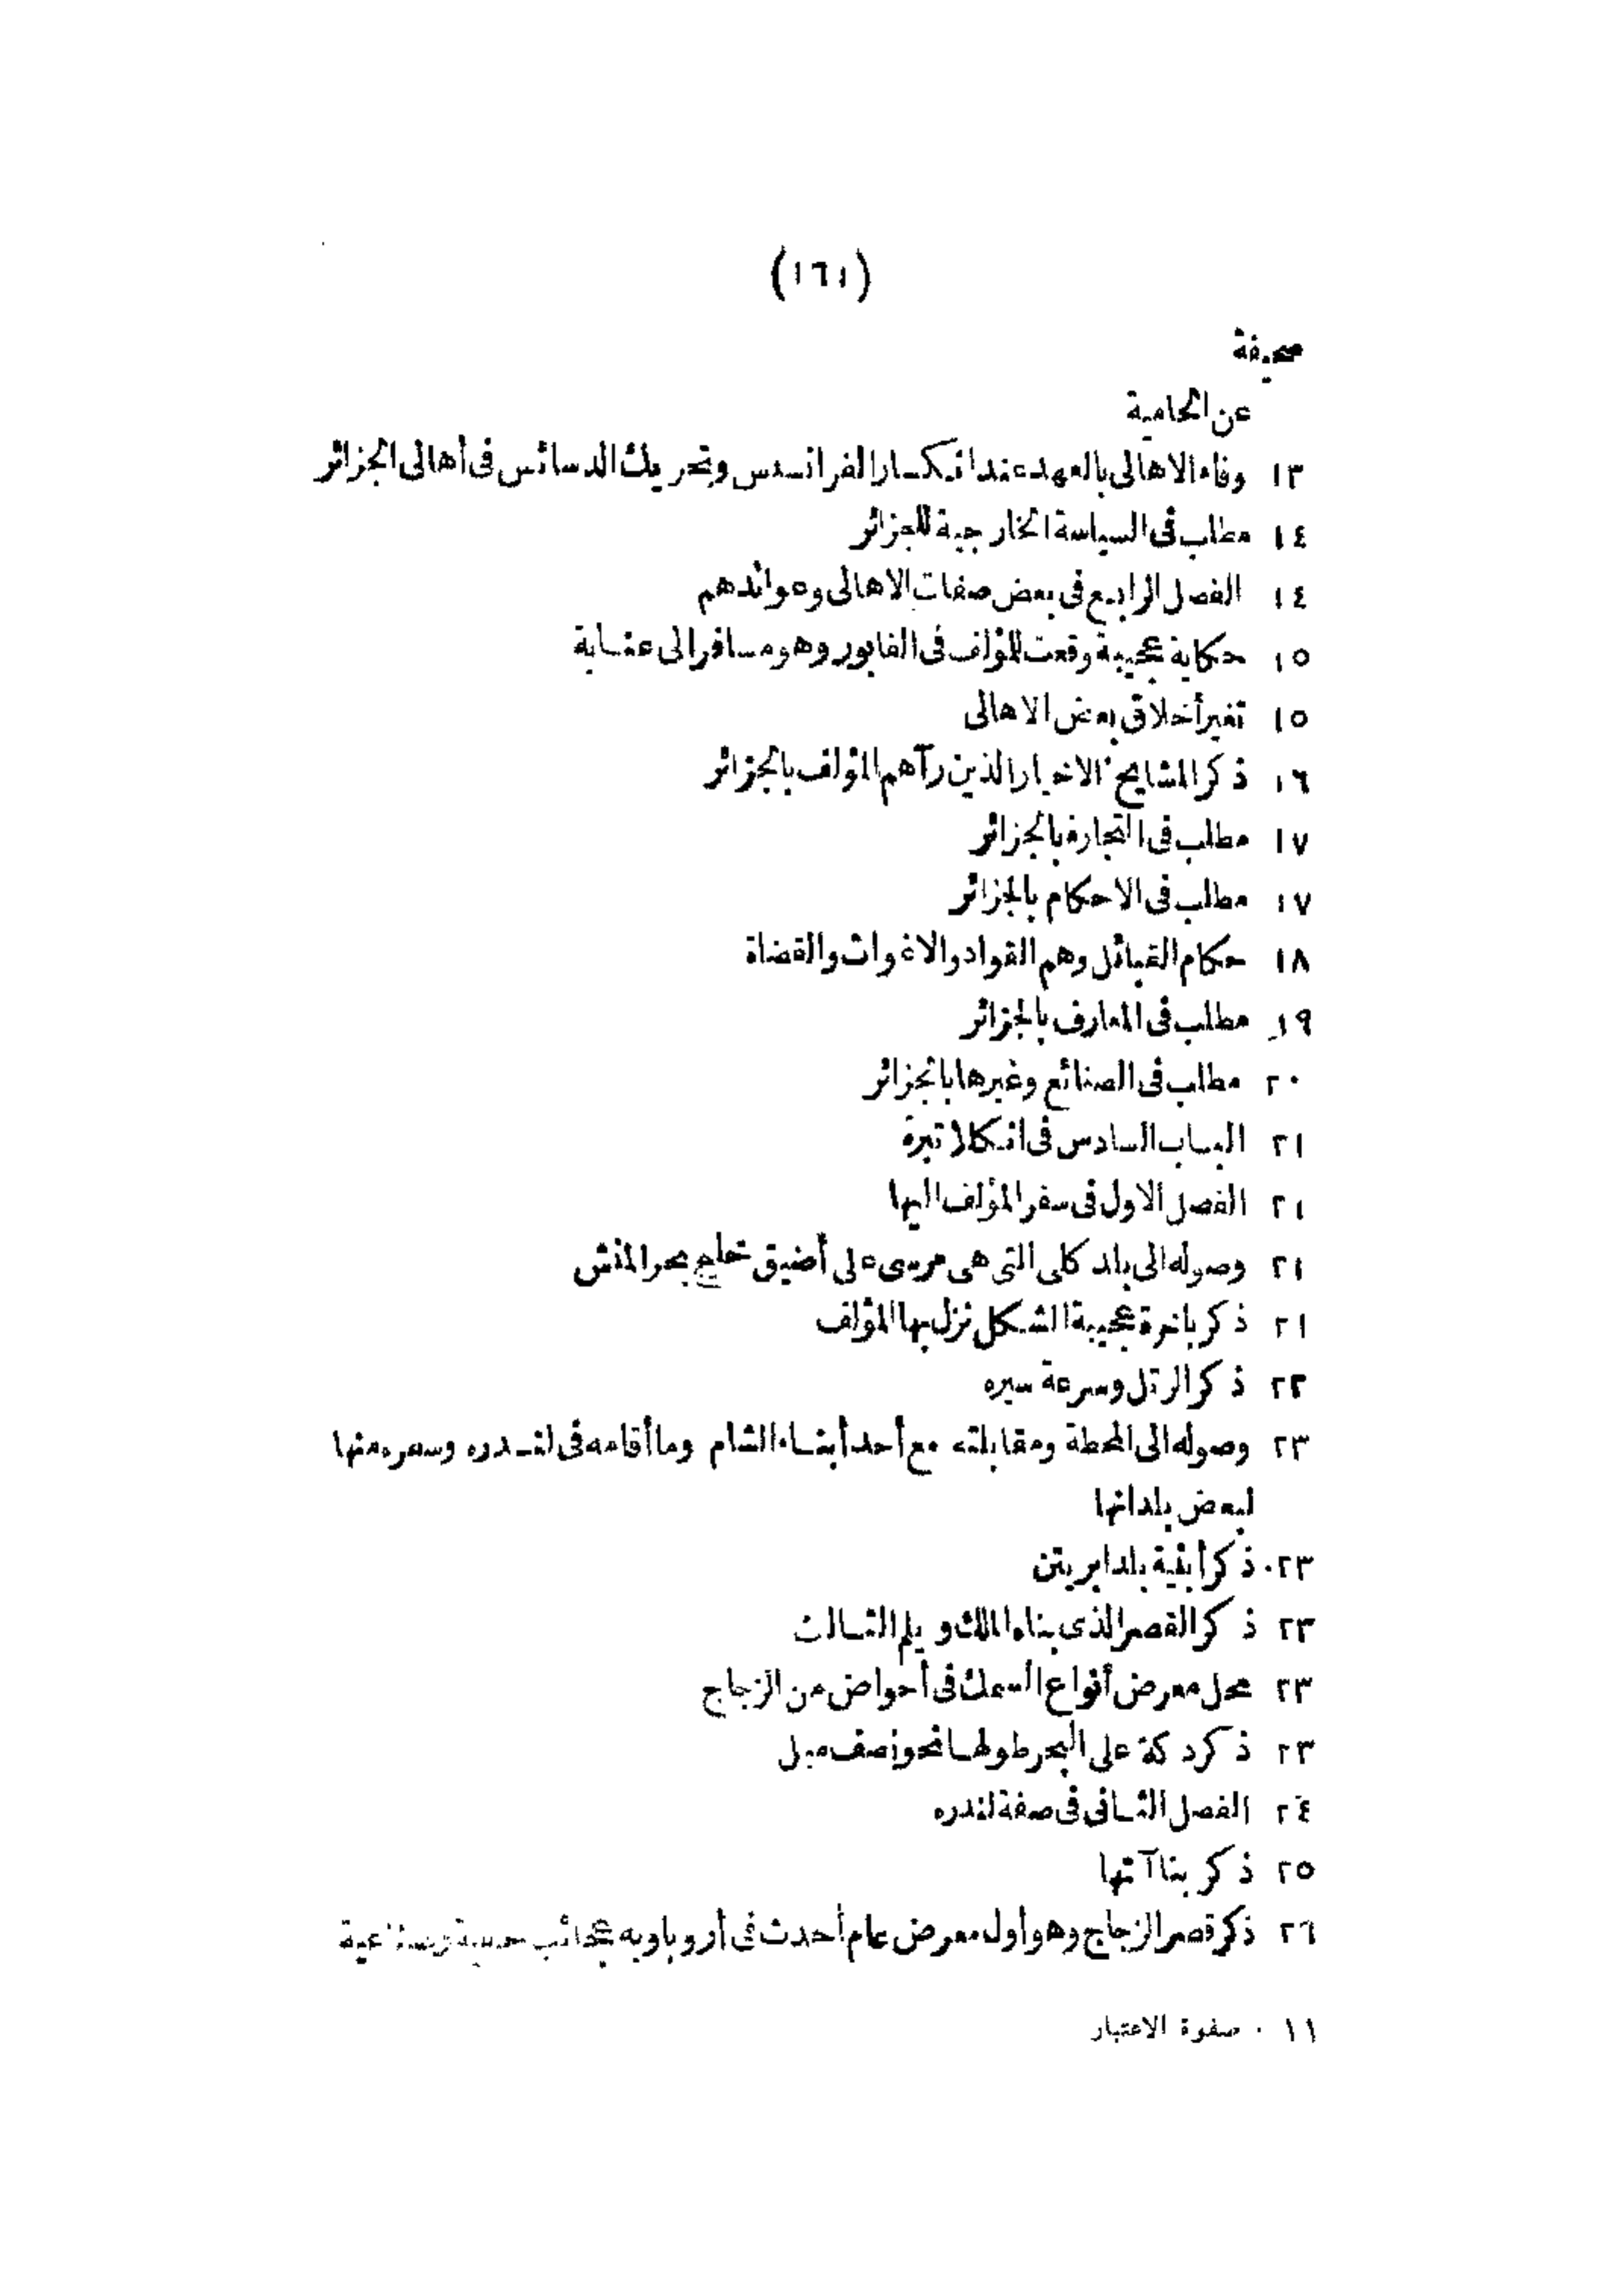 (١٦١)
صحيفة
عن الحامية
١٣ وفاء الاهالى بالعهد عند انكسار الفرانسيس وتحريك الدسائس فى أهالى الجزائر
١٤ مطلب فى السياسة الخارجية للجزائر
١٤ الفصل الرابع فى بعض صفات الاهالى وعوائدهم
١٥ حكاية عجيبة وقعت للمؤلف فى الفابور وهو مسافر الى عنابة
١٥ تغير أخلاق بعض الاهالى
١٦ ذكر المشايخ الاخيار الذين رآهم المؤلف بالجزائر
١٧ مطلب فى التجارة بالجزائر
١٧ مطلب فى الاحكام بالجزائر
١٨ حكام القبائل وهم القواد والاغوات والقضاة
١٩ مطلب فى المعارف بالجزائر
٢٠ مطلب فى الصنائع وغيرها بالجزائر
٢١ الباب السادس فى انكلاتيرة
٢١ الفصل الاول فى سفر المؤلف اليها
٢١ وصوله الى بلد كلى التى هى مرسى على أضيق خليج بحر المنش
٢١ ذكر باخرة عجيبة الشكل نزل بها المؤلف
٢٢ ذكر الرتل وسرعة سيره
٢٣ وصوله الى المحطة ومقابلته مع أحد أبناء الشام وما أقامه فى لندره وسفره منها
لبعض بلدانها
٢٣ ذكر أبنية بلد ابريتن
٢٣ ذكر القصر الذى بناه الملك ويلم الثالث
٢٣ محل معرض أنواع السمك فى أحواض من الزجاج
٢٣ ذكر دكة على البحر طولها نحو نصف ميل
٢٤ الفصل الثانى فى صفة لندره
٢٥ ذكر بناآتها
٢٦ ذكر قصر الزجاج وهو أول معرض عام أحدث فى أروبا وبه عجائب حسية وصناعية
١١ . صفوة الاعتبار